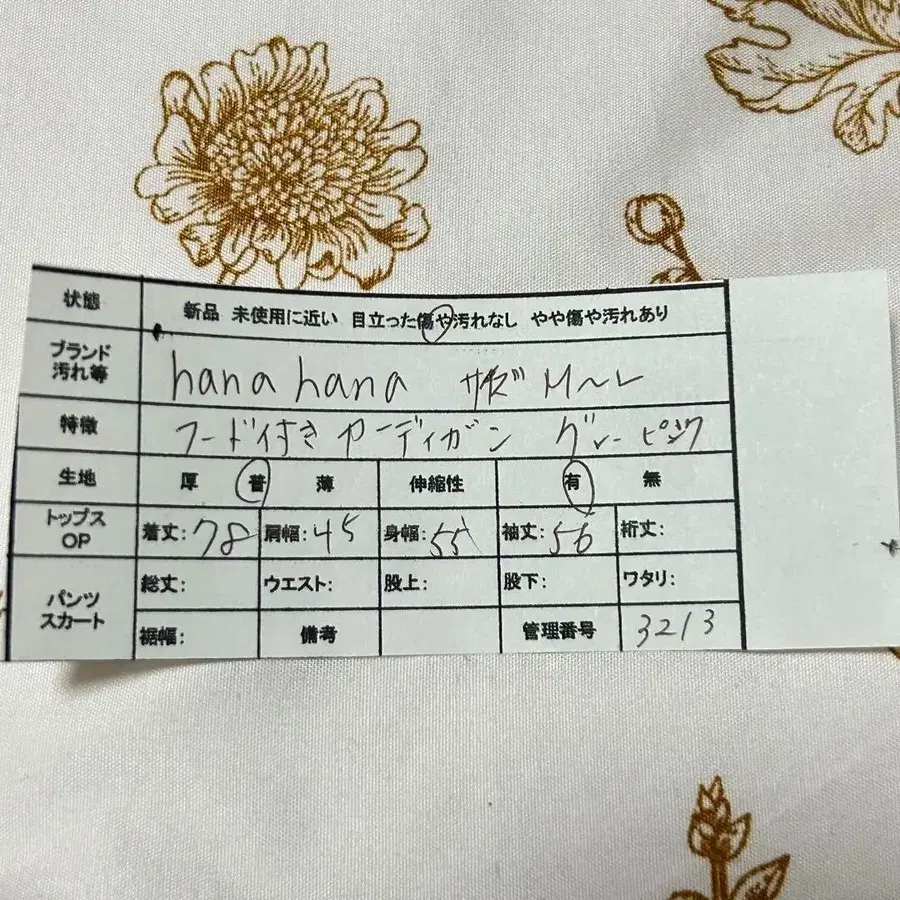 状態 新品 未使用に近い 目立った傷や汚れなし やや傷や汚れあり
ブランド
汚れ等
hana hana サイズ M〜L
特徴 フード付きカーディガン グレーピンク
生地 厚 普 薄 伸縮性 有 無
トップス
OP
着丈:78 肩幅:45 身幅:55 袖丈:56 裄丈:
パンツ
スカート
総丈: ウエスト: 股上: 股下: ワタリ:
裾幅: 備考 管理番号 3213